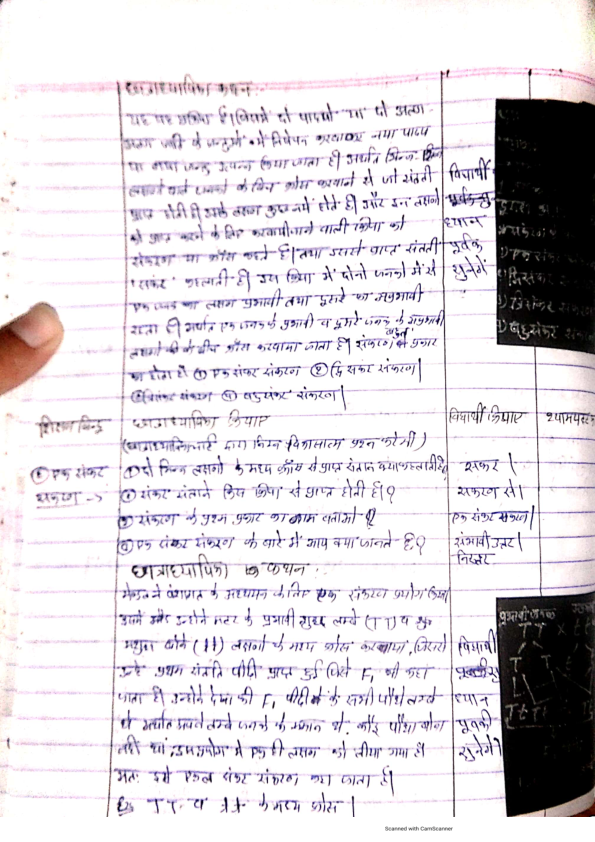 छात्राध्यापिका कथन :-
यह वह प्रक्रिया है। जिसमें दो पादपों या दो अलग-
अलग जाति के जन्तुओं में निषेचन करवाकर नया पादप
या नया जन्तु उत्पन्न किया जाता है। अर्थात भिन्न-भिन्न
लक्षणों वाले जनकों के बीच क्रॉस करवाने से जो संतती
प्राप्त होती है। उसके लक्षण होते है। और इन लक्षणों
को प्राप्त करने के लिए करवायी जाने वाली क्रिया को
संकरण या क्रॉस कहते है। तथा इससे प्राप्त संतती
संकर कहलाती है। इस क्रिया में दोनो जनको में से
एक जनक का लक्षण प्रभावी तथा दूसरे का अप्रभावी
होता है। अर्थात एक जनक के प्रभावी व दूसरे जनक के अप्रभावी
लक्षणों के बीच क्रॉस करवाया जाता है। संकरण प्रकार
का होता है। ① एक संकर संकरण ② द्वि संकर संकरण।
③ त्रिसंकर संकरण ④ बहुसंकर संकरण।
विद्यार्थी
ध्यान
पूर्वक
सुनेगें
शिक्षण बिन्दु
छात्राध्यापिका क्रियाए
विद्यार्थी क्रियाए
(छात्राध्यापिका द्वारा निम्न विकासात्मक प्रश्न करेगी)
① एक संकर
संकरण :->
① दो भिन्न लक्षणों के मध्य क्रॉस से प्राप्त संतान क्या कहलाती है?
संकर।
② संकर संताने किस क्रिया से प्राप्त होती है।?
संकरण से।
③ संकरण के प्रथम प्रकार का नाम बताओ ?
एक संकर संकरण।
④ एक संकर संकरण के बारे में आप क्या जानते है?
संभावी उत्तर।
निरुत्तर
छात्राध्यापिका कथन :
मेण्डल ने वंशागत के अध्ययन के लिए एक संकरण प्रयोग किया
उसमें उन्होने मटर के प्रभावी शुद्ध लम्बे (TT) व शुद्ध
बोने (tt) लक्षणों के मध्य क्रॉस करवाया, जिससे
उन्हे प्रथम संतति पीढी प्राप्त हुई जिसे F₁ भी कहा
जाता है। उन्होने देखा की F₁ पीढी के सभी पौधे लम्बे
थे अर्थात अपने लम्बे जनक के समान थे। कोई पौधा बोना
नहीं था, इस प्रयोग में एक ही लक्षण को लीया गया है।
अतः इसे एकल संकर संकरण कहा जाता है।
TT व tt के मध्य क्रॉस।
विद्यार्थी
ध्यान
पूर्वक
सुनेगें
Scanned with CamScanner